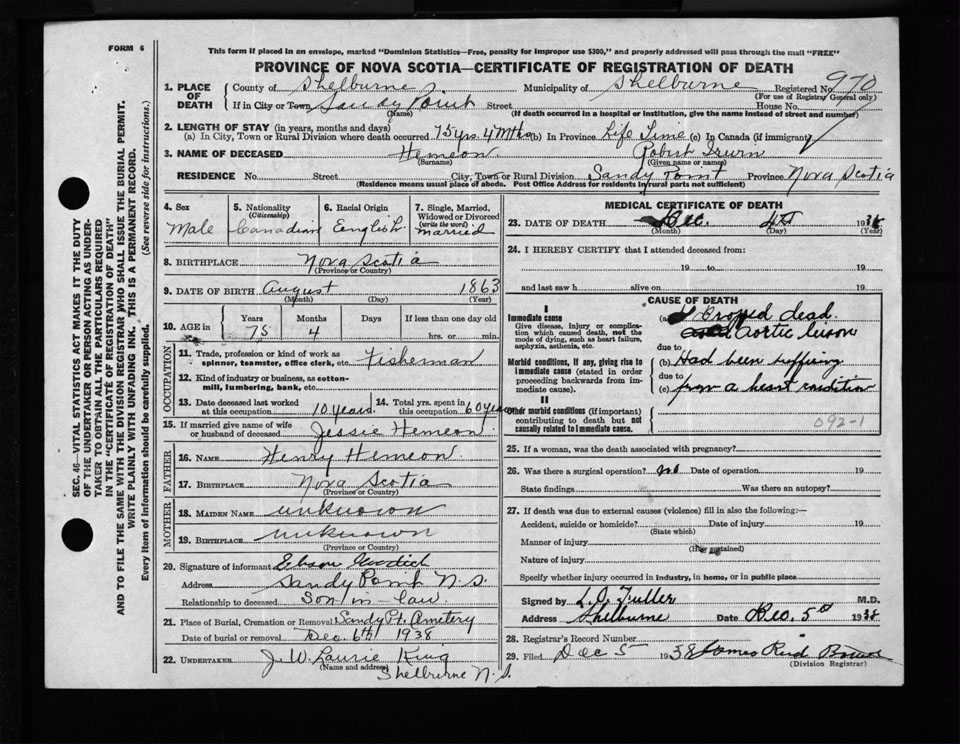 FORM 6
This form if placed in an envelope, marked "Dominion Statistics—Free, penalty for improper use $300," and properly addressed will pass through the mail "FREE"
PROVINCE OF NOVA SCOTIA—CERTIFICATE OF REGISTRATION OF DEATH
1. PLACE OF DEATH
County of Shelburne Municipality of Shelburne Registered No. 970
(For use of Registrar General only)
If in City or Town Sandy Point Street House No.
(Name) (If death occurred in a hospital or institution, give its name instead of street and number)
2. LENGTH OF STAY (in years, months and days)
(a) In City, Town or Rural Division where death occurred 75 yrs. 4 Mths (b) In Province Life Time (c) In Canada (if immigrant)
3. NAME OF DECEASED Hemeon Robert Irwin
(Surname) (Given name or names)
RESIDENCE No. Street City, Town or Rural Division Sandy Point Province Nova Scotia
(Residence means usual place of abode. Post Office Address for residents in rural parts not sufficient)
4. Sex
Male
5. Nationality
(Citizenship)
Canadian
6. Racial Origin
English
7. Single, Married, Widowed or Divorced
(write the word)
married
8. BIRTHPLACE Nova Scotia
(Province or Country)
9. DATE OF BIRTH August 1863
(Month) (Day) (Year)
10. AGE in
Years Months Days If less than one day old
75 4 hrs. or min.
OCCUPATION
11. Trade, profession or kind of work as spinner, teamster, office clerk, etc. Fisherman
12. Kind of industry or business, as cotton-mill, lumbering, bank, etc.
13. Date deceased last worked at this occupation 10 years.
14. Total yrs. spent in this occupation 60 years
15. If married give name of wife or husband of deceased Jessie Hemeon
FATHER
16. Name Henry Hemeon
17. Birthplace Nova Scotia
(Province or Country)
MOTHER
18. Maiden Name unknown
19. Birthplace unknown
(Province or Country)
20. Signature of informant
Address Sandy Point N.S.
Relationship to deceased Son in law
21. Place of Burial, Cremation or Removal Sandy Pt. Cemetery
Date of burial or removal Dec. 6th 1938
22. UNDERTAKER J. W. Laurie King
(Name and address) Shelburne N.S.
MEDICAL CERTIFICATE OF DEATH
23. DATE OF DEATH Dec. 1938
(Month) (Day) (Year)
24. I HEREBY CERTIFY that I attended deceased from:
19 to 19
and last saw h alive on 19
CAUSE OF DEATH
I
Immediate cause
Give disease, injury or complication which caused death, not the mode of dying, such as heart failure, asphyxia, asthenia, etc.
(a) Dropped dead.
Aortic lesion
due to
Morbid conditions, if any, giving rise to Immediate cause (stated in order proceeding backwards from immediate cause).
(b) Had been suffering
due to
(c) from a heart condition
II
Other morbid conditions (if important) contributing to death but not causally related to Immediate cause.
092-1
25. If a woman, was the death associated with pregnancy?
26. Was there a surgical operation? no Date of operation 19
State findings Was there an autopsy?
27. If death was due to external causes (violence) fill in also the following:—
Accident, suicide or homicide? Date of injury 19
(State which)
Manner of injury
(How sustained)
Nature of injury
Specify whether injury occurred in industry, in home, or in public place
Signed by L.O. Fuller M.D.
Address Shelburne Date Dec. 5th 1938
28. Registrar's Record Number
29. Filed Dec 5 1938 James Reid
(Division Registrar)
SEC. 46—VITAL STATISTICS ACT MAKES IT THE DUTY
OF THE UNDERTAKER OR PERSON ACTING AS UNDER-
TAKER TO OBTAIN ALL THE PARTICULARS REQUIRED
IN THE "CERTIFICATE OF REGISTRATION OF DEATH"
AND TO FILE THE SAME WITH THE DIVISION REGISTRAR WHO SHALL ISSUE THE BURIAL PERMIT.
WRITE PLAINLY WITH UNFADING INK. THIS IS A PERMANENT RECORD.
Every item of information should be carefully supplied. (See reverse side for instructions.)